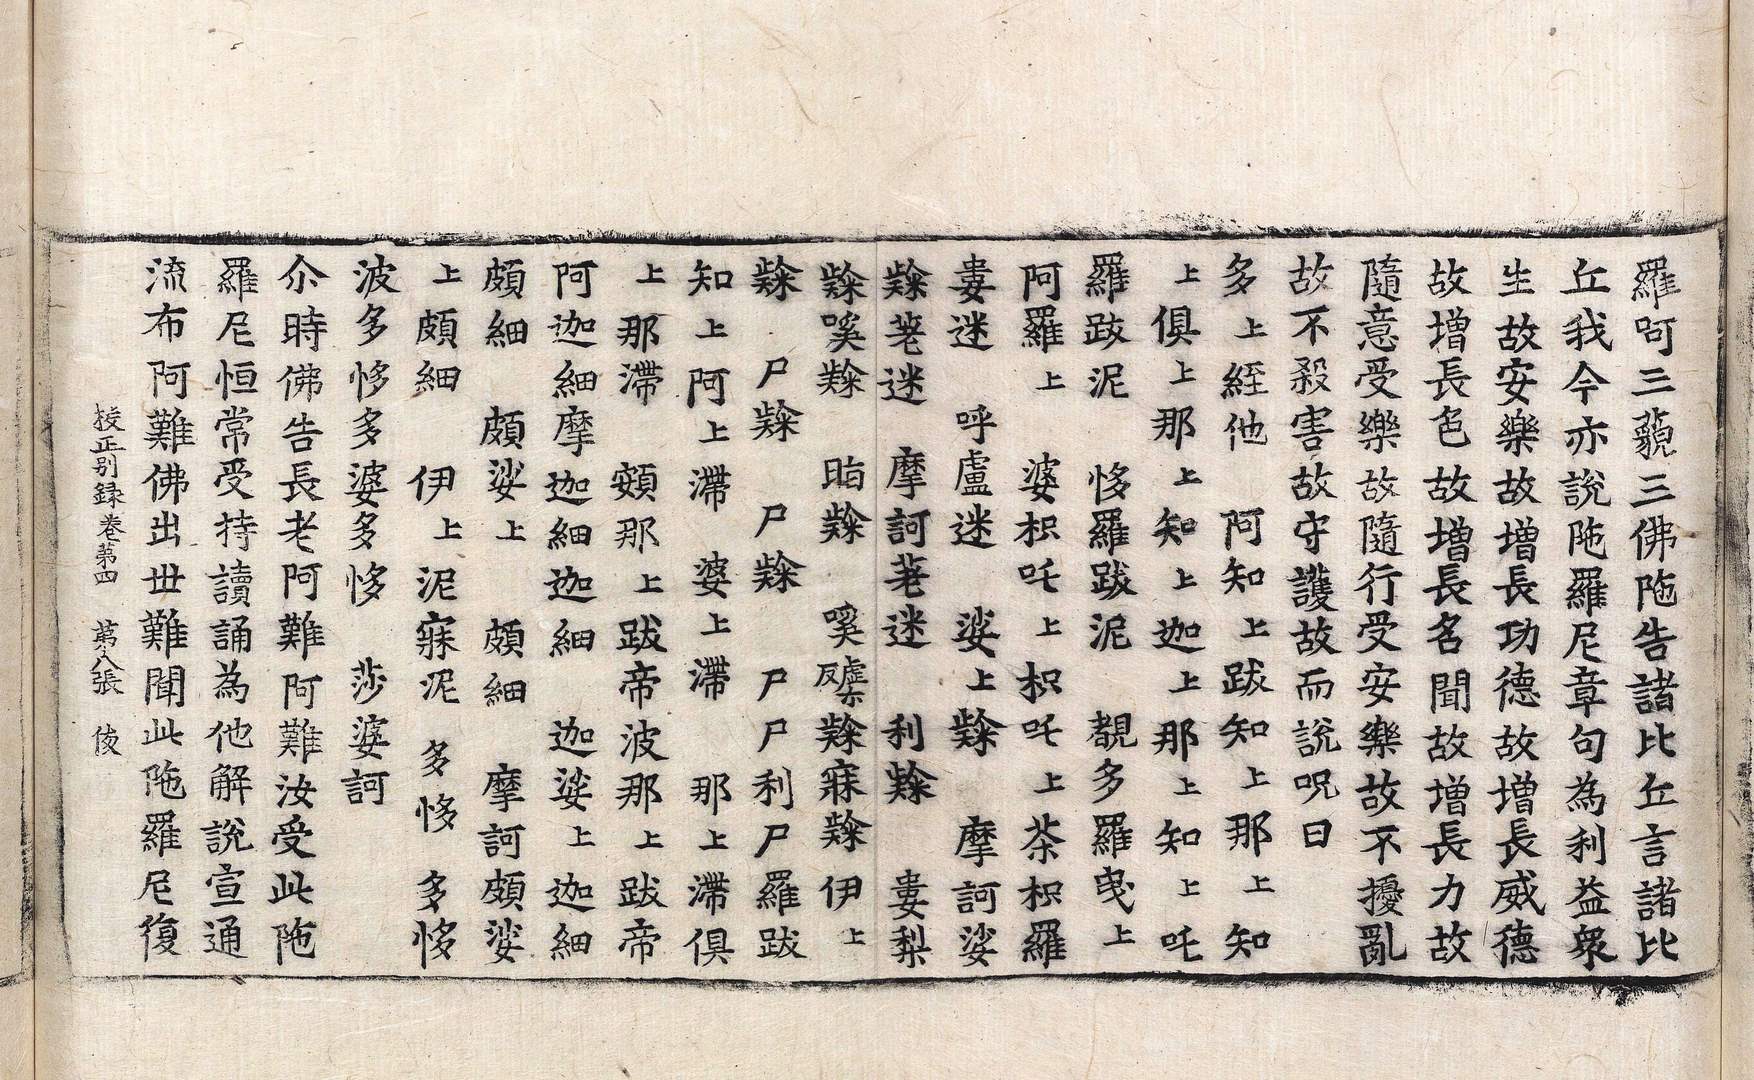 羅呵三藐三佛陁告諸比丘言諸比
丘我今亦說陁羅尼章句為利益衆
生故安樂故增長功德故增長威德
故增長色故增長名聞故增長力故
隨意受樂故隨行受安樂故不擾亂
故不殺害故守護故而說呪曰
多上絰他 阿知上跋知上那上知
上俱上那上知上迦上那上知上吒
羅跋泥 哆羅跋泥 覩多羅曳上
阿羅上 婆枳吒上枳吒上荼枳羅
婁迷 呼盧迷 娑上 摩訶娑
迷 摩訶迷 利 婁梨
嗘 伊上
尸 尸 尸尸利尸羅跋
知上阿上滯 婆上滯 那上滯俱
上那滯 頞那上跋帝波那上跋帝
阿迦細摩迦細迦細 迦娑上迦細
頗細 頗娑上 頗細 摩訶頗娑
上頗細 伊上泥寐泥 多哆多哆
波多哆多婆多哆 莎婆訶
尒時佛告長老阿難阿難汝受此陁
羅尼恒常受持讀誦為他解說宣通
流布阿難佛出世難聞此陁羅尼復
挍正别録卷苐四 苐八張